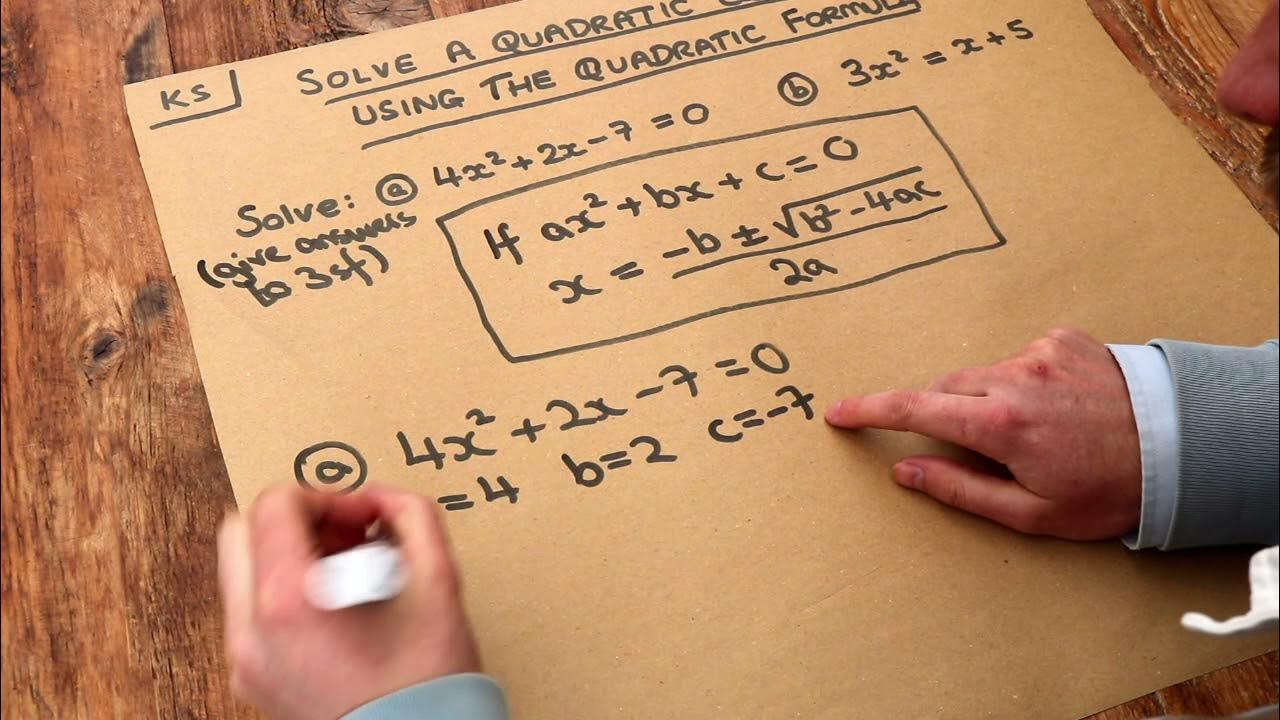 KS
SOLVE A QUADRATIC
USING THE QUADRATIC FORMULA
Solve: ⓐ 4x² + 2x - 7 = 0 ⓑ 3x² = x + 5
(give answers
to 3sf)
If ax² + bx + c = 0
x = -b ± √b² - 4ac
2a
ⓐ 4x² + 2x - 7 = 0
= 4 b = 2 c = -7